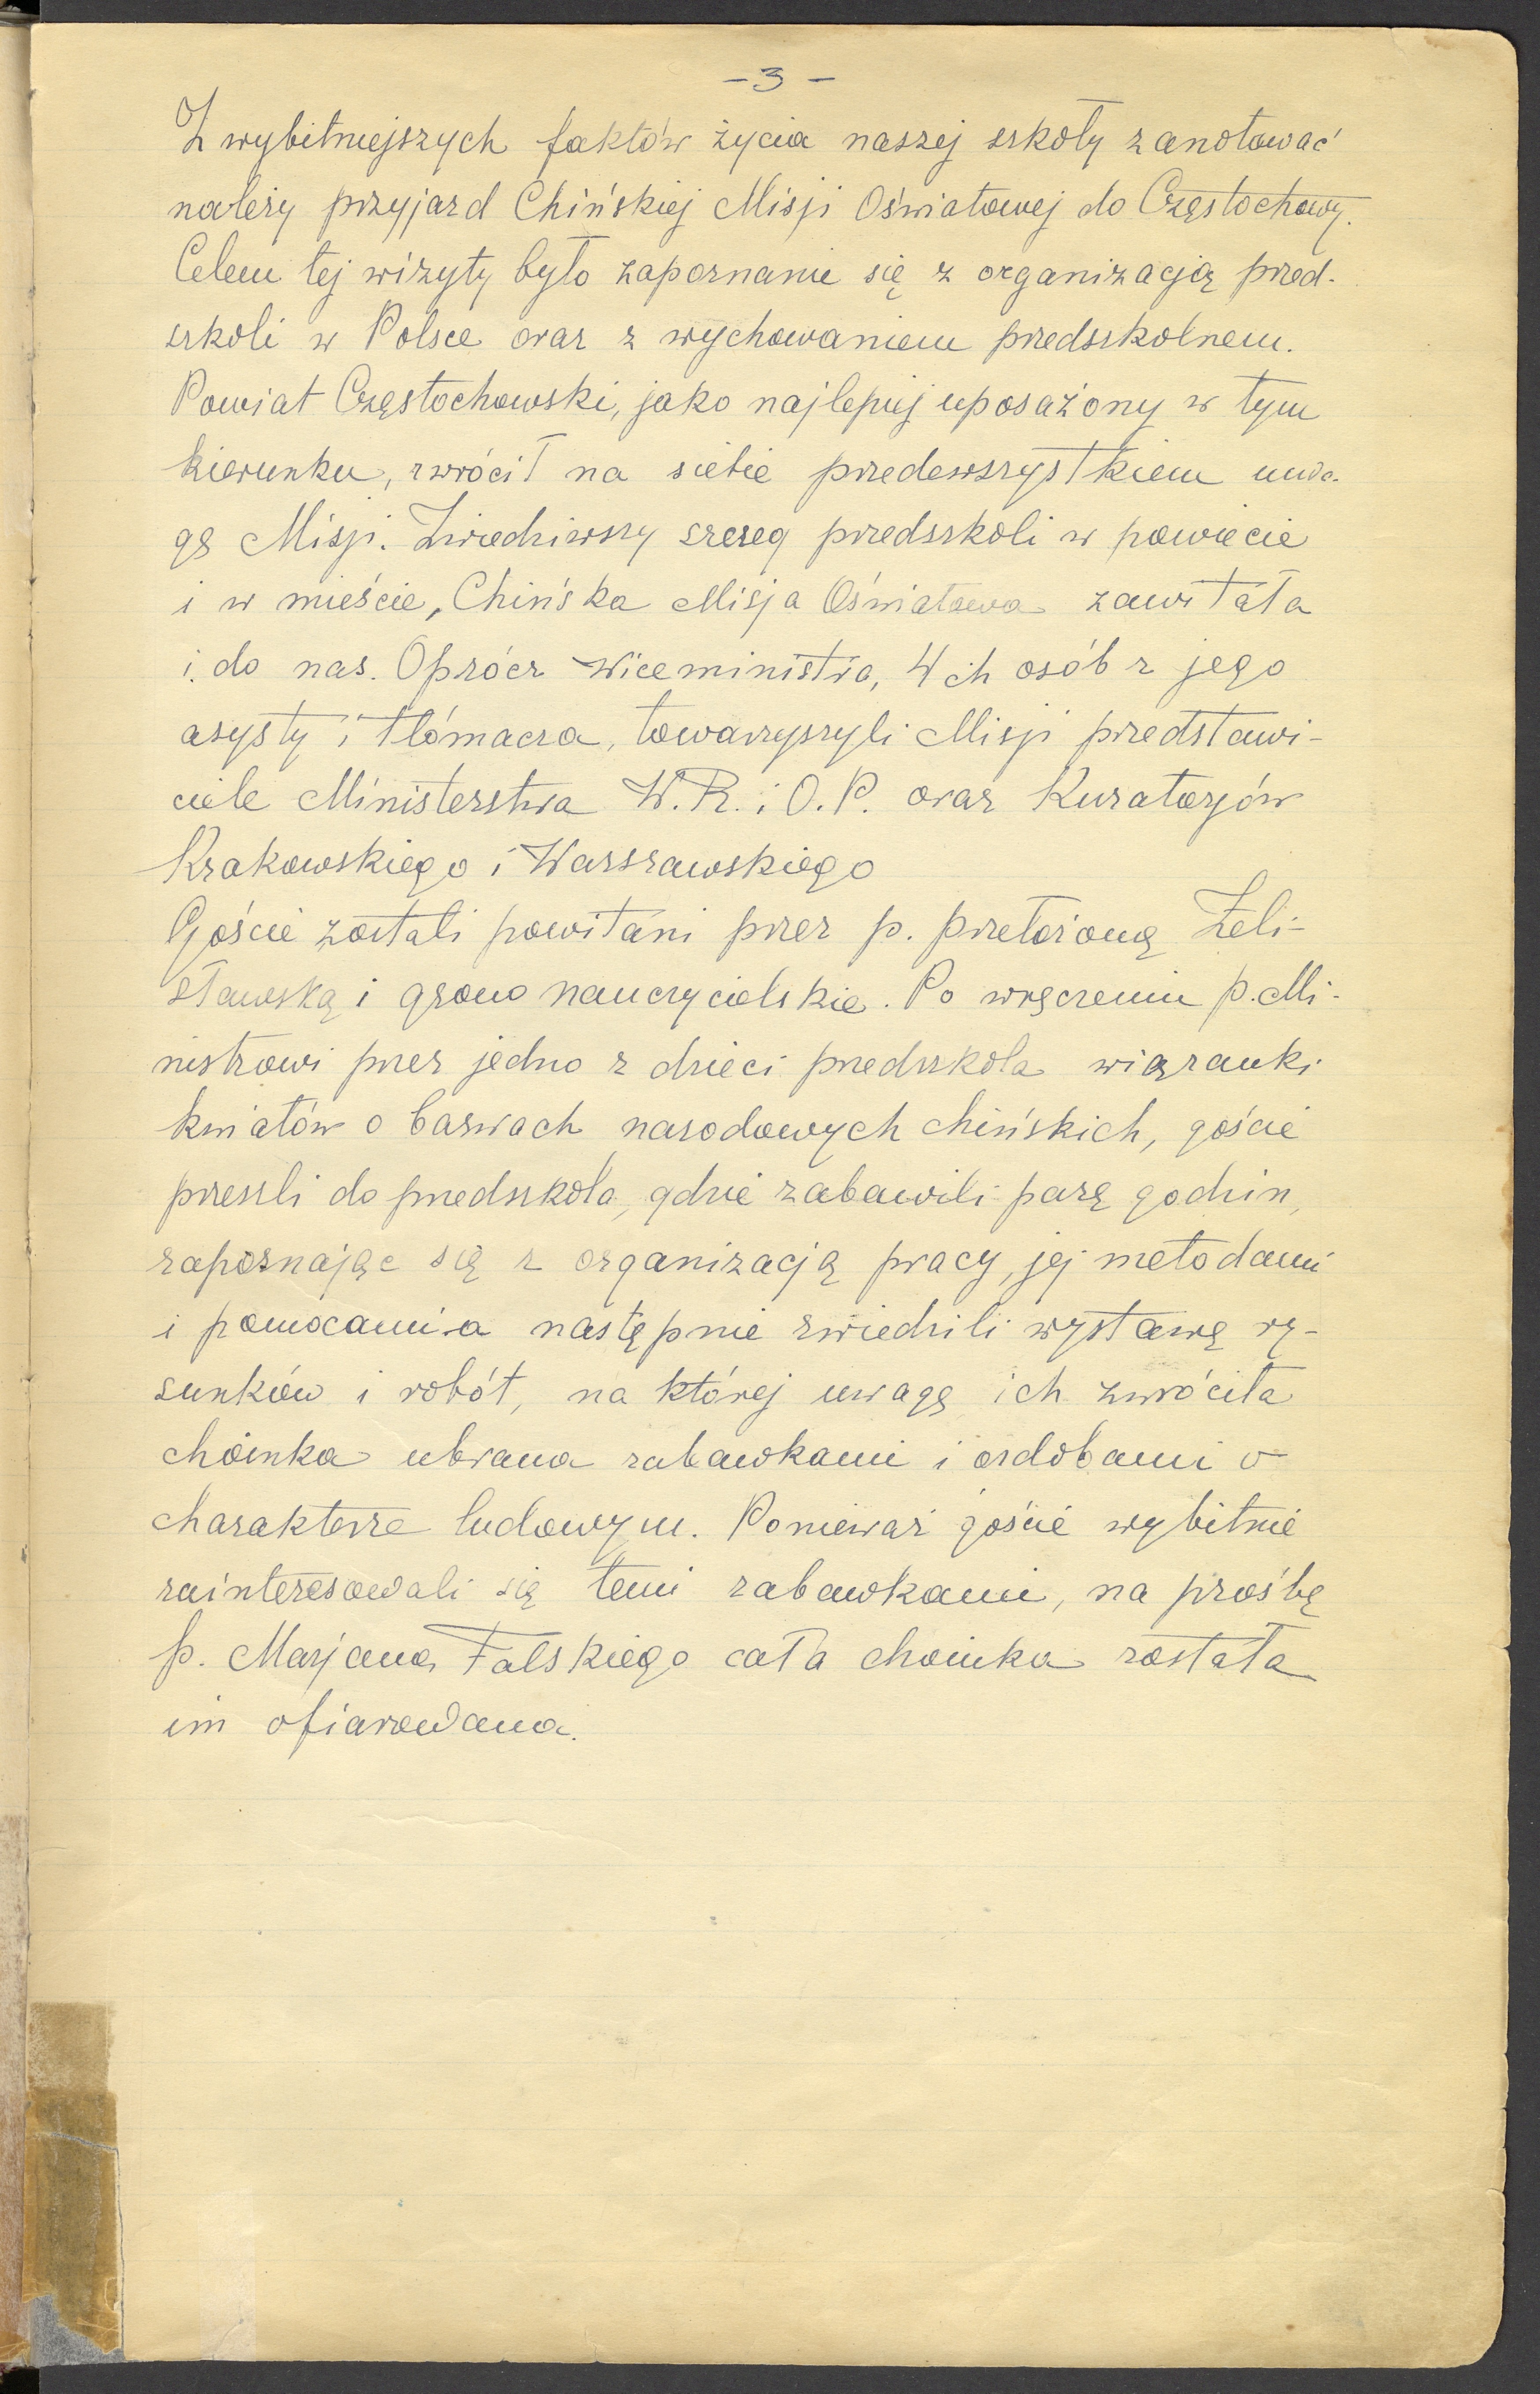 - 3 -
Z wybitniejszych faktów życia naszej szkoły zanotować
należy przyjazd Chińskiej Misji Oświatowej do Częstochowy.
Celem tej wizyty było zapoznanie się z organizacją przed-
szkoli w Polsce oraz z wychowaniem przedszkolnem.
Powiat Częstochowski, jako najlepiej uposażony w tym
kierunku, zwrócił na siebie przedewszystkiem uwa-
gę Misji. Zwiedziwszy szereg przedszkoli w powiecie
i w mieście, Chińska Misja Oświatowa zawitała
i do nas. Oprócz wiceministra, 4 ch osób z jego
asysty i tłómacza, towarzyszyli Misji przedstawi-
ciele Ministerstwa W. R. i O. P. oraz Kuratorjów
Krakowskiego i Warszawskiego
Goście zostali powitani przez p. przełożoną Żeli-
sławską i grono nauczycielskie. Po wręczeniu p. Mi-
nistrowi przez jedno z dzieci przedszkola wiązanki
kwiatów o barwach narodowych chińskich, goście
przeszli do przedszkola, gdzie zabawili parę godzin,
zapoznając się z organizacją pracy, jej metodami
i pomocami a następnie zwiedzili wystawę ry-
sunków i robót, na której uwagę ich zwróciła
choinka ubrana zabawkami i ozdobami o
charakterze ludowym. Ponieważ goście wybitnie
zainteresowali się temi zabawkami, na prośbę
p. Marjana Falskiego cała choinka została
im ofiarowana.